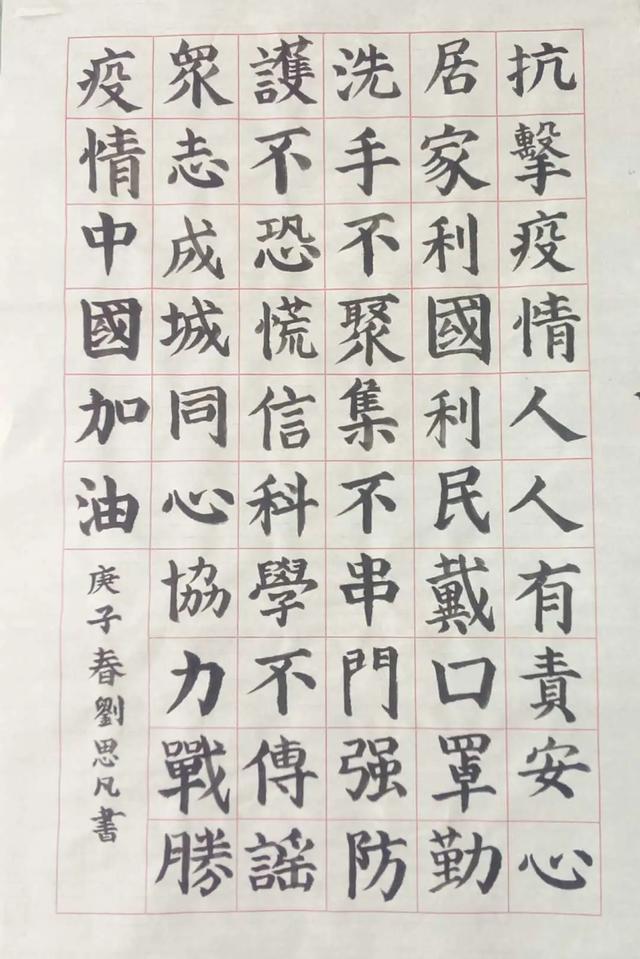 抗擊疫情人人有責安心
居家利國利民戴口罩勤
洗手不聚集不串門强防
護不恐慌信科學不傳謠
眾志成城同心協力戰勝
疫情中國加油
庚子春劉思凡書